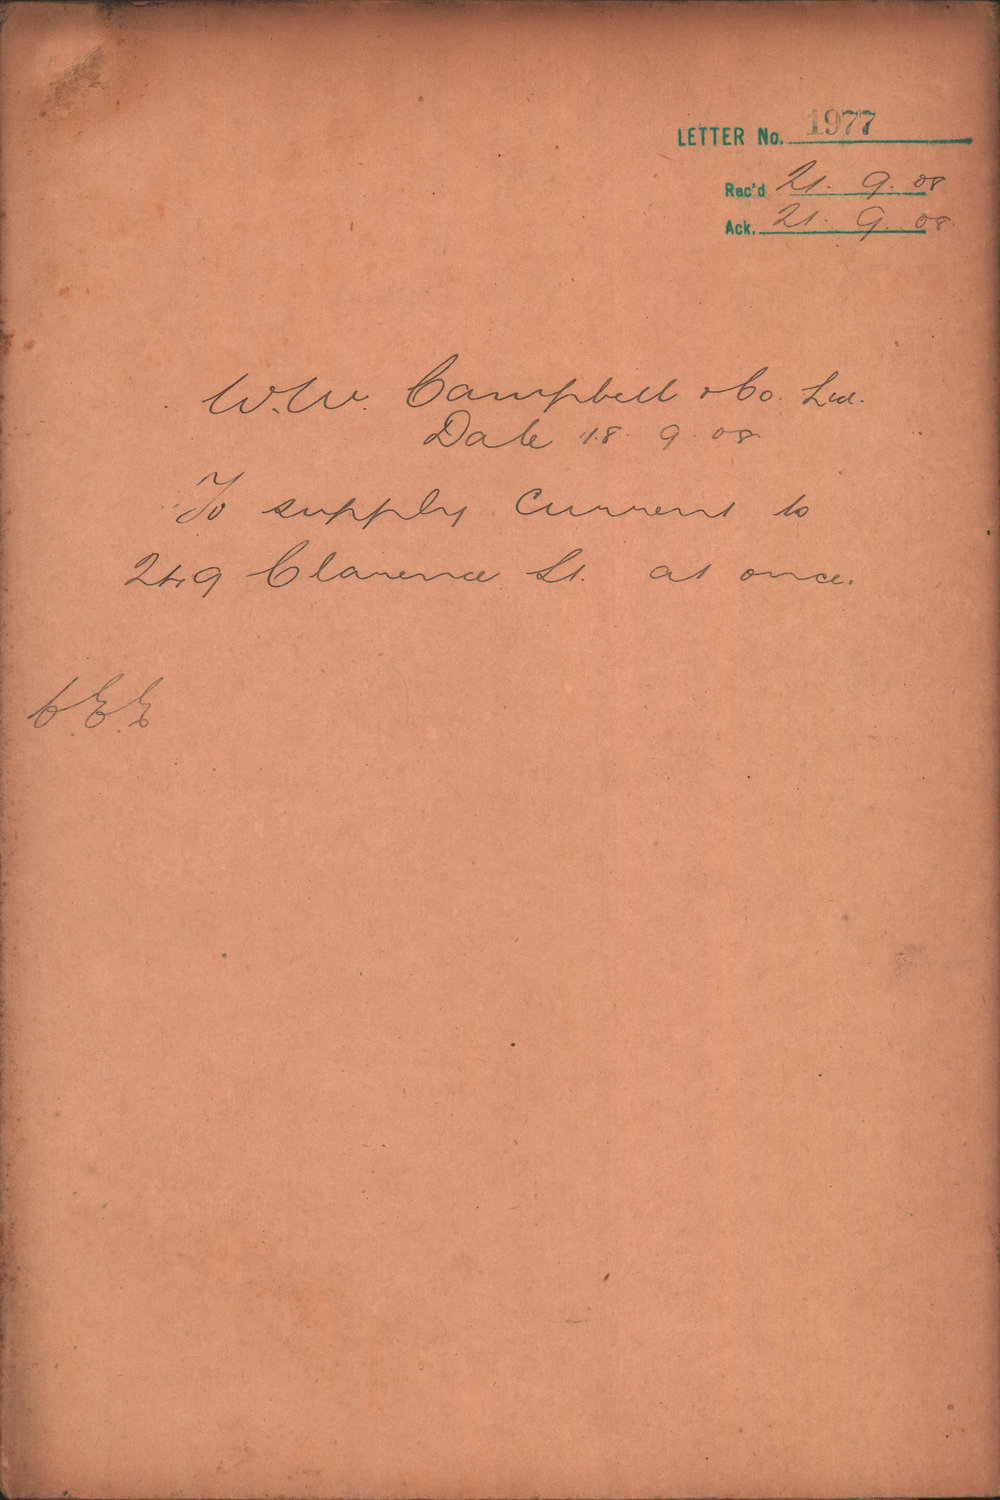 LETTER No. 1977
Rec'd 21. 9. 08
Ack. 21. 9. 08.
W.W. Campbell & Co. Ltd.
Date 18. 9. 08
To supply current to
249 Clarence St. at once.
C.E.E